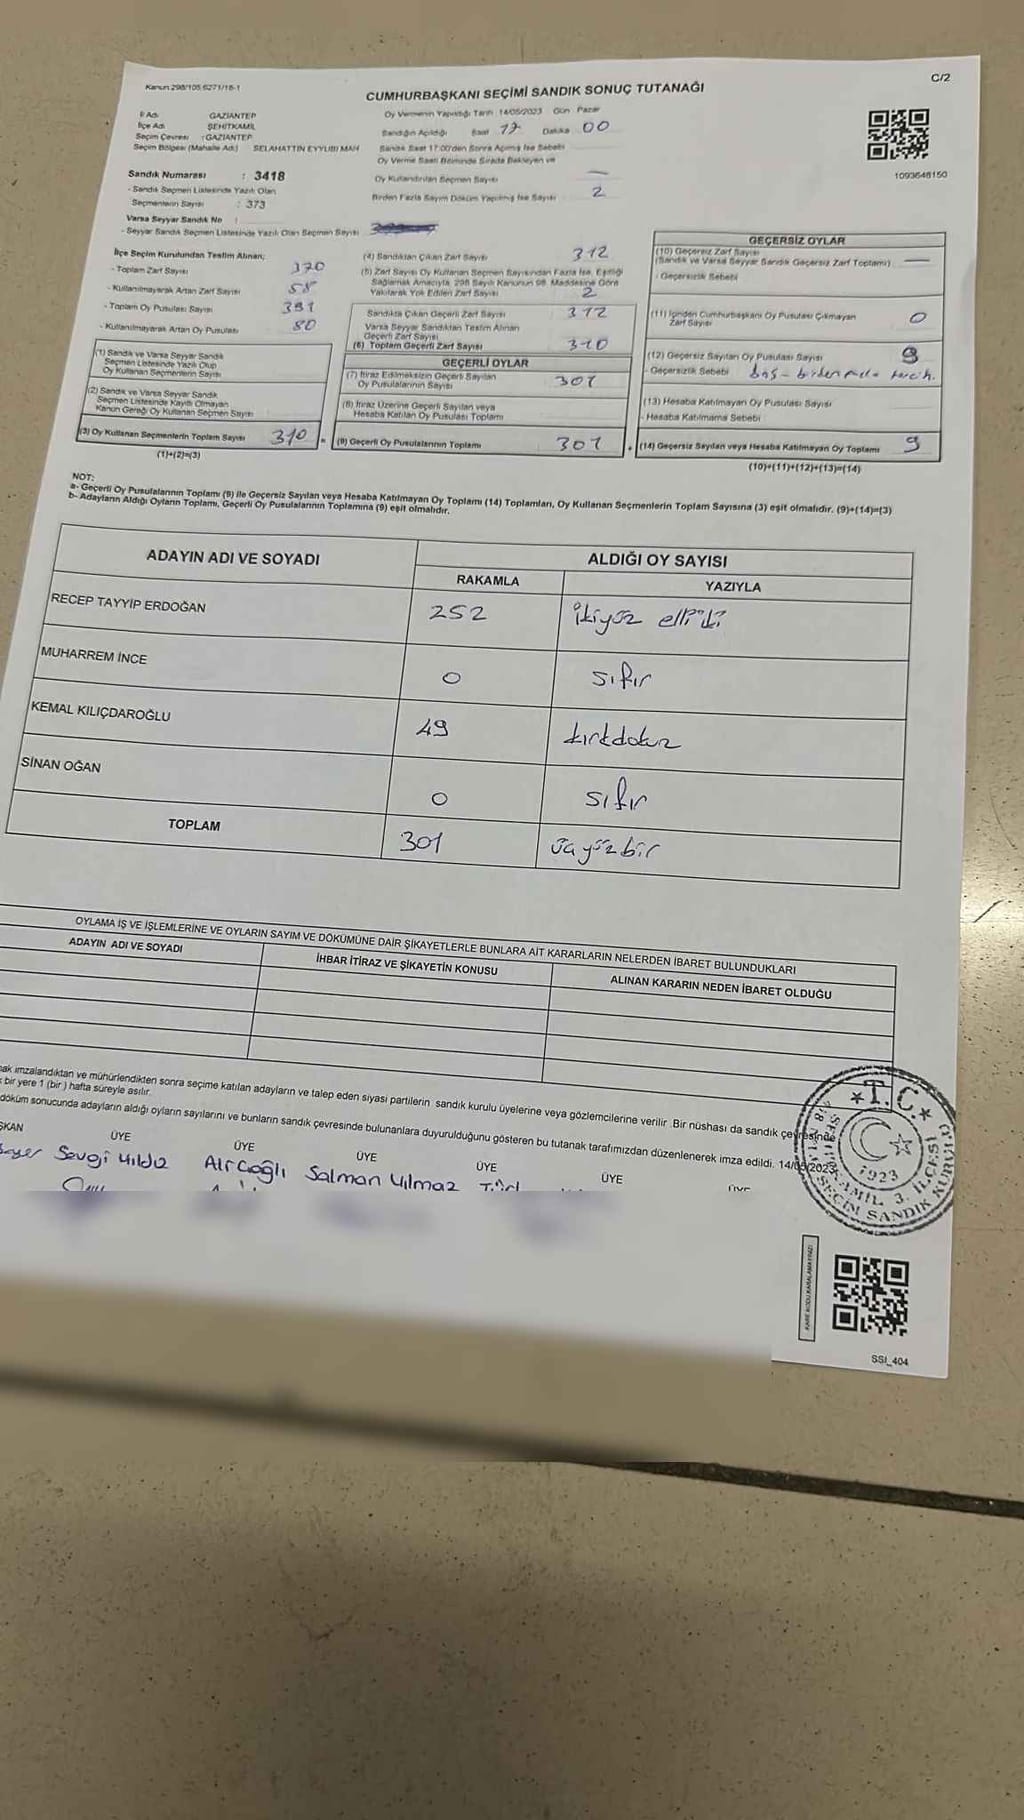 Kanun 298/105 6271/16-1
C/2
CUMHURBAŞKANI SEÇİMİ SANDIK SONUÇ TUTANAĞI
İl Adı GAZİANTEP
İlçe Adı ŞEHİTKAMİL
Seçim Çevresi : GAZİANTEP
Seçim Bölgesi (Mahalle Adı) SELAHATTİN EYYUBİ MAH
Oy Vermenin Yapıldığı Tarih 14/05/2023 Gün Pazar
Sandığın Açıldığı Saat 17 Dakika 00
Sandık Saat 17:00'den Sonra Açılmış İse Sebebi
Oy Verme Saati Bitiminde Sırada Bekleyen ve
Oy Kullandırılan Seçmen Sayısı —
Birden Fazla Sayım Döküm Yapılmış İse Sayısı 2
1093648150
Sandık Numarası : 3418
- Sandık Seçmen Listesinde Yazılı Olan
Seçmenlerin Sayısı : 373
Varsa Seyyar Sandık No :
- Seyyar Sandık Seçmen Listesinde Yazılı Olan Seçmen Sayısı
İlçe Seçim Kurulundan Teslim Alınan;
- Toplam Zarf Sayısı 370
- Kullanılmayarak Artan Zarf Sayısı 58
- Toplam Oy Pusulası Sayısı 391
- Kullanılmayarak Artan Oy Pusulası 80
(1) Sandık ve Varsa Seyyar Sandık
Seçmen Listesinde Yazılı Olup
Oy Kullanan Seçmenlerin Sayısı
(2) Sandık ve Varsa Seyyar Sandık
Seçmen Listesinde Kayıtlı Olmayan
Kanun Gereği Oy Kullanan Seçmen Sayısı
(3) Oy Kullanan Seçmenlerin Toplam Sayısı 310
(1)+(2)=(3)
(4) Sandıktan Çıkan Zarf Sayısı 312
(5) Zarf Sayısı Oy Kullanan Seçmen Sayısından Fazla İse, Eşitliği
Sağlamak Amacıyla, 298 Sayılı Kanunun 98. Maddesine Göre
Yakılarak Yok Edilen Zarf Sayısı 2
Sandıkta Çıkan Geçerli Zarf Sayısı 312
Varsa Seyyar Sandıktan Teslim Alınan
Geçerli Zarf Sayısı
(6) Toplam Geçerli Zarf Sayısı 310
GEÇERLİ OYLAR
(7) İtiraz Edilmeksizin Geçerli Sayılan
Oy Pusulalarının Sayısı 301
(8) İtiraz Üzerine Geçerli Sayılan veya
Hesaba Katılan Oy Pusulası Toplamı
(9) Geçerli Oy Pusulalarının Toplamı 301
GEÇERSİZ OYLAR
(10) Geçersiz Zarf Sayısı
(Sandık ve Varsa Seyyar Sandık Geçersiz Zarf Toplamı) —
- Geçersizlik Sebebi
(11) İçinden Cumhurbaşkanı Oy Pusulası Çıkmayan
Zarf Sayısı 0
(12) Geçersiz Sayılan Oy Pusulası Sayısı 9
- Geçersizlik Sebebi boş - birden fazla tercih.
(13) Hesaba Katılmayan Oy Pusulası Sayısı
- Hesaba Katılmama Sebebi
(14) Geçersiz Sayılan veya Hesaba Katılmayan Oy Toplamı 9
(10)+(11)+(12)+(13)=(14)
NOT:
a- Geçerli Oy Pusulalarının Toplamı (9) ile Geçersiz Sayılan veya Hesaba Katılmayan Oy Toplamı (14) Toplamları, Oy Kullanan Seçmenlerin Toplam Sayısına (3) eşit olmalıdır. (9)+(14)=(3)
b- Adayların Aldığı Oyların Toplamı, Geçerli Oy Pusulalarının Toplamına (9) eşit olmalıdır.
ADAYIN ADI VE SOYADI
ALDIĞI OY SAYISI
RAKAMLA YAZIYLA
RECEP TAYYİP ERDOĞAN 252 ikiyüz elliiki
MUHARREM İNCE 0 sıfır
KEMAL KILIÇDAROĞLU 49 kırkdokuz
SİNAN OĞAN 0 sıfır
TOPLAM 301 üçyüzbir
OYLAMA İŞ VE İŞLEMLERİNE VE OYLARIN SAYIM VE DÖKÜMÜNE DAİR ŞİKAYETLERLE BUNLARA AİT KARARLARIN NELERDEN İBARET BULUNDUKLARI
ADAYIN ADI VE SOYADI İHBAR İTİRAZ VE ŞİKAYETİN KONUSU ALINAN KARARIN NEDEN İBARET OLDUĞU
imzalandıktan ve mühürlendikten sonra seçime katılan adayların ve talep eden siyasi partilerin sandık kurulu üyelerine veya gözlemcilerine verilir. Bir nüshası da sandık çevresinde
bir yere 1 (bir) hafta süreyle asılır.
döküm sonucunda adayların aldığı oyların sayılarını ve bunların sandık çevresinde bulunanlara duyurulduğunu gösteren bu tutanak tarafımızdan düzenlenerek imza edildi. 14/05/2023
ÜYE ÜYE ÜYE ÜYE ÜYE
Sevgi Yıldız Ali Cioğlı Salman Yılmaz
T.C.
1923
ŞEHİTKAMİL 3. İLÇE
SEÇİM SANDIK KURULU
KARE KODU KARALAMAYINIZ!
SSI_404